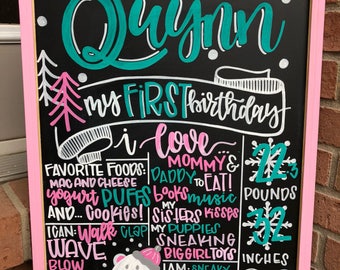 Quynn
my FIRST birthday
i love...
FAVORITE FOODS:
MAC AND CHEESE
yogurt PUFFS
AND... COOKIES!
I CAN: WALK CLAP
WAVE
BLOW
MOMMY... &
DADDY TO EAT!
books music
MY SISTERS KISSES
MY PUPPIES
SNEAKING
BIG GIRL TOYS
I AM: SNEAKY
22.3
POUNDS
32
INCHES